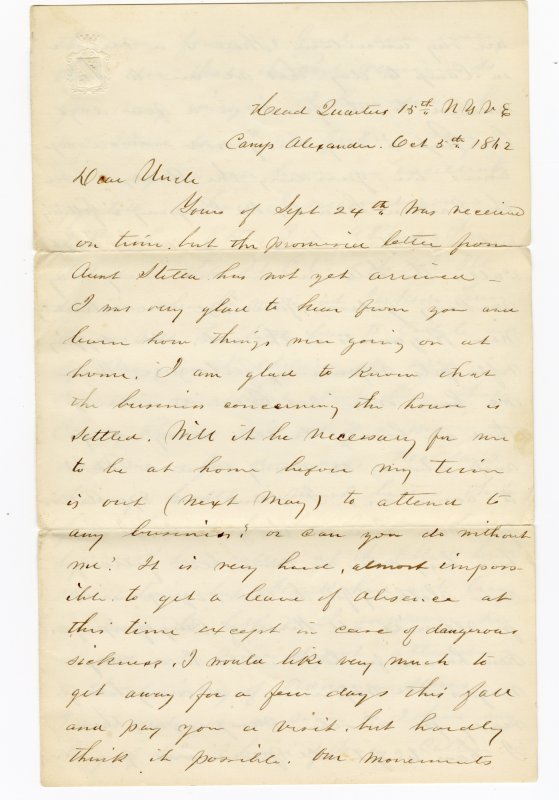 Head Quarters 15th N Y V E
Camp Alexander. Oct 5th 1862
Dear Uncle
Yours of Sept 24th was received
on time, but the promised letter from
Aunt Stella has not yet arrived –
I was very glad to hear from you and
learn how things were going on at
home. I am glad to know that
the business concerning the house is
settled. Will it be necessary for me
to be at home before my term
is out (next May) to attend to
any business? or can you do without
me? It is very hard, almost imposs
ible to get a leave of absence at
this time except in case of dangerous
sickness. I would like very much to
get away for a few days this fall
and pay you a visit, but hardly
think it possible. Our movements